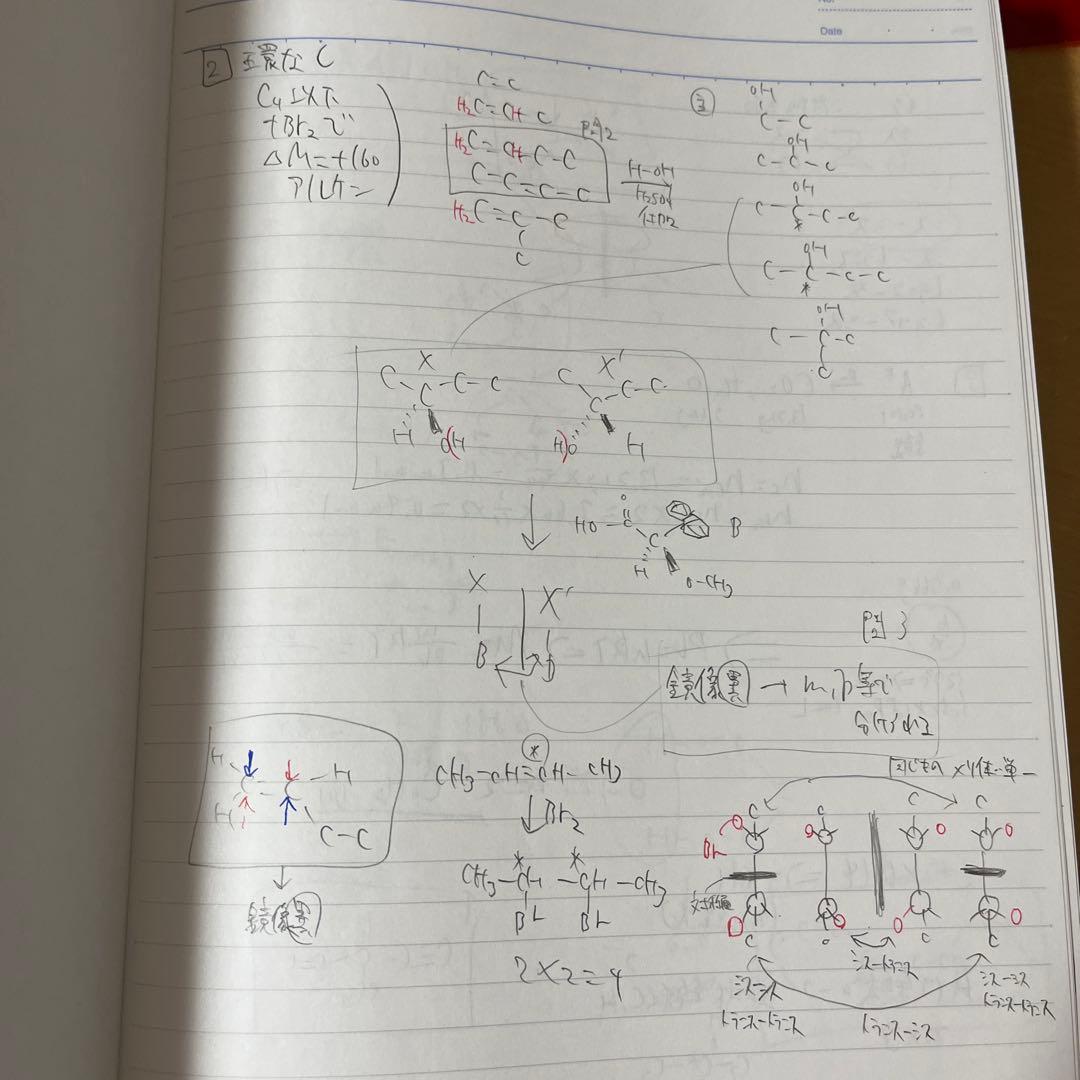 Date
2 主要な C
C4以下
+Br2で
ΔM=+160
アルケン
C=C
H2C=CH C
H2C=CH-C-C
C-C=C-C
H2C=C-C
C
H-OH
H2SO4
付加
3
OH
C-C
OH
C-C-C
OH
C-C-C-C
*
OH
C-C-C-C
*
OH
C-C-C
C
X
C C-C-C
H OH
X'
C C-C-C
HO H
O
HO-C C B
H O-CH3
X X'
B B
図3
鏡像異 → m.p.等で
分けられる
H C=C-H
H C-C
鏡像異
*
CH3-CH=CH-CH3
Br2
* *
CH3-CH-CH-CH3
Br Br
2×2=4
同じもの メソ体…単一
C C C C
Br
対称面
C C C
シス-トランス
シス-シス
トランス-トランス
トランス-シス
シス-シス
トランス-トランス